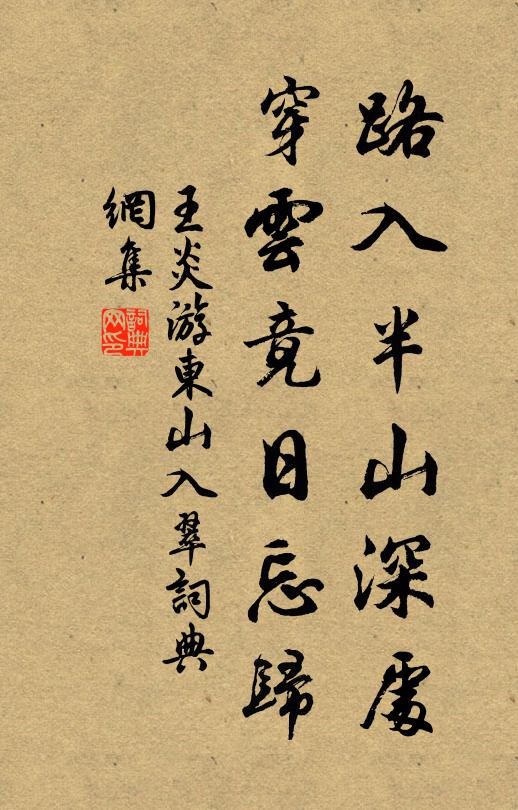 路入半山深處
穿雲竟日忘歸
王炎游東山入翠詞典
網集
詞典网印